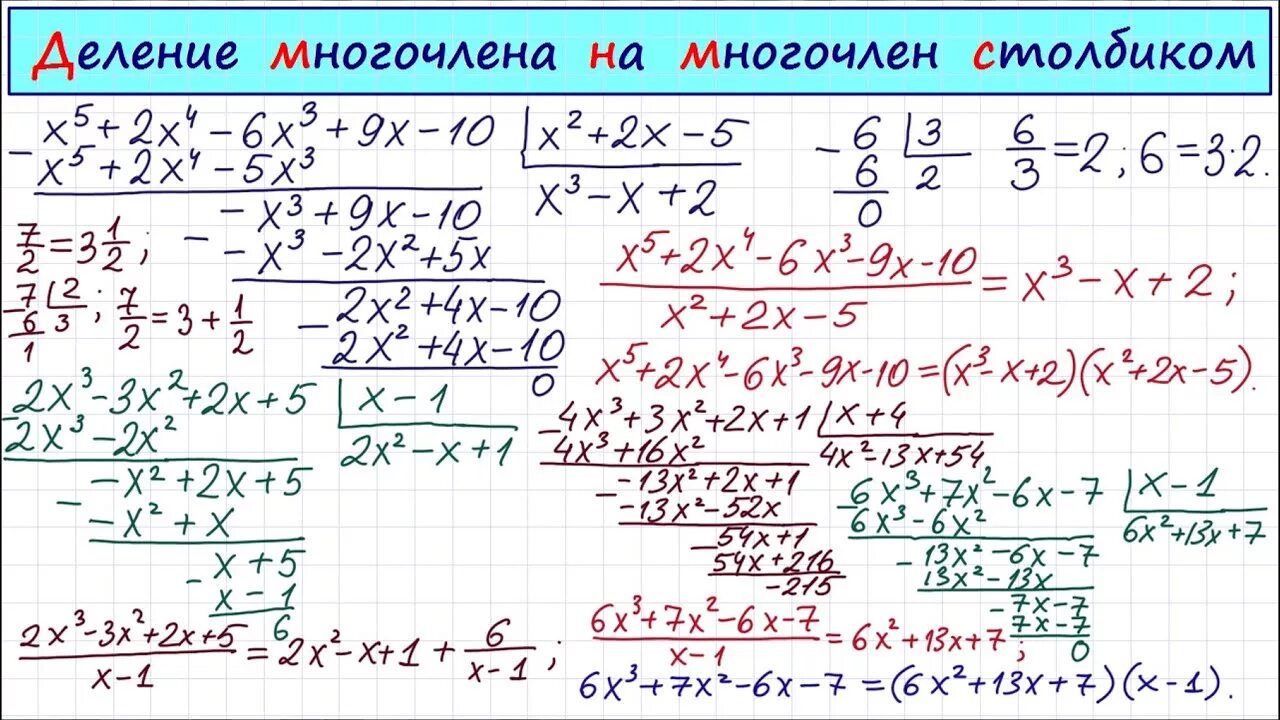 Деление многочлена на многочлен столбиком
- x⁵ + 2x⁴ - 6x³ + 9x - 10 | x² + 2x - 5
x⁵ + 2x⁴ - 5x³
x³ - x + 2
- x³ + 9x - 10
- - x³ - 2x² + 5x
2x² + 4x - 10
- 2x² + 4x - 10
0
- 6 | 3
6 2
0
6/3 = 2; 6 = 3·2.
7/2 = 3 1/2;
- 7 | 2
6 3 ;
1
7/2 = 3 + 1/2
(x⁵ + 2x⁴ - 6x³ - 9x - 10)/(x² + 2x - 5) = x³ - x + 2;
x⁵ + 2x⁴ - 6x³ - 9x - 10 = (x³ - x + 2)(x² + 2x - 5).
- 2x³ - 3x² + 2x + 5 | x - 1
2x³ - 2x²
2x² - x + 1
- x² + 2x + 5
- - x² + x
x + 5
- x - 1
6
(2x³ - 3x² + 2x + 5)/(x - 1) = 2x² - x + 1 + 6/(x - 1);
- 4x³ + 3x² + 2x + 1 | x + 4
4x³ + 16x² 4x² - 13x + 54
- - 13x² + 2x + 1
- 13x² - 52x
- 54x + 1
54x + 216
- 215
- 6x³ + 7x² - 6x - 7 | x - 1
6x³ - 6x² 6x² + 13x + 7
- 13x² - 6x - 7
13x² - 13x
- 7x - 7
7x - 7
0
(6x³ + 7x² - 6x - 7)/(x - 1) = 6x² + 13x + 7;
6x³ + 7x² - 6x - 7 = (6x² + 13x + 7)(x - 1).